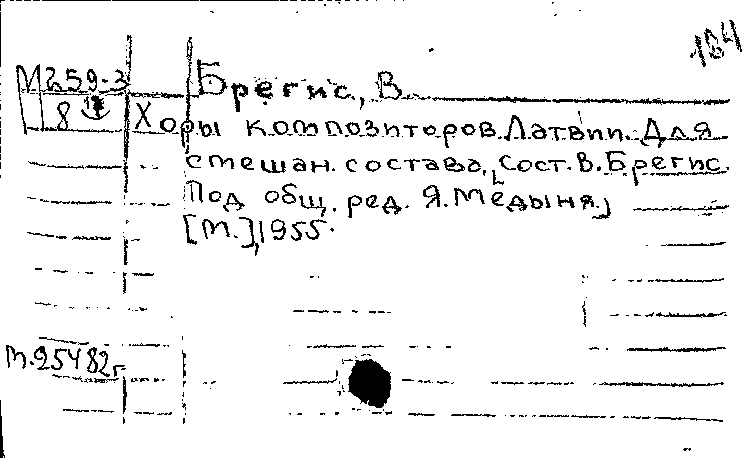 184
М259-3 Брегис, В.
8 Хоры композиторов Латвии. Для
смешан. состава, [Сост. В. Брегис.
Под общ. ред. Я. Медыня.]
[М.], 1955.
М.25482г